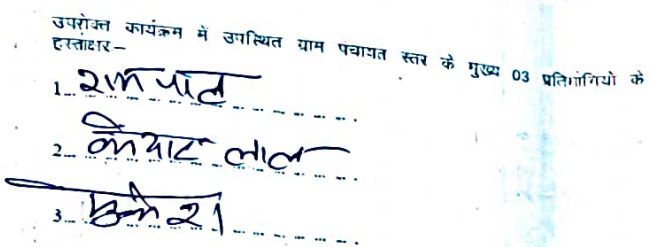 उपरोक्त कार्यक्रम में उपस्थित ग्राम पंचायत स्तर के मुख्य 03 प्रतिभागियो के
हस्ताक्षर–
1... राम पाल
2... लाल
3...